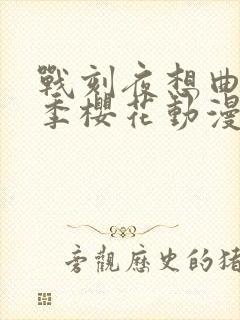 戰刻夜想曲
季櫻花動漫
旁觀歷史的猪